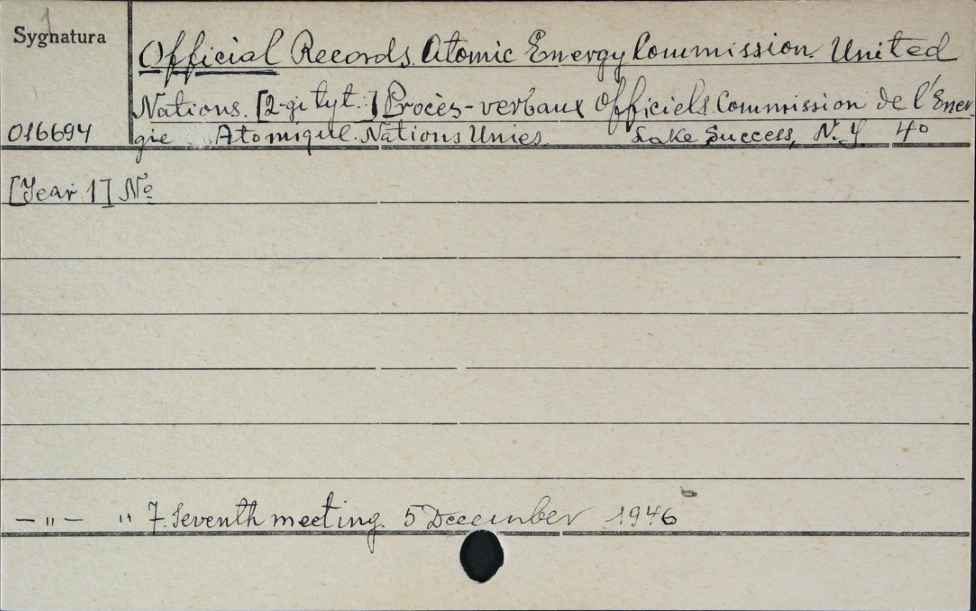 Sygnatura
Official Records. Atomic Energy Commission. United
Nations. [2-gi tyt.:] Procès-verbaux Officiels. Commission de l'Ener-
016694 gie Atomique. Nations Unies. Lake Success, N.Y. 4°
[Year 1] Nº
— " — " 7. Seventh meeting. 5 December 1946